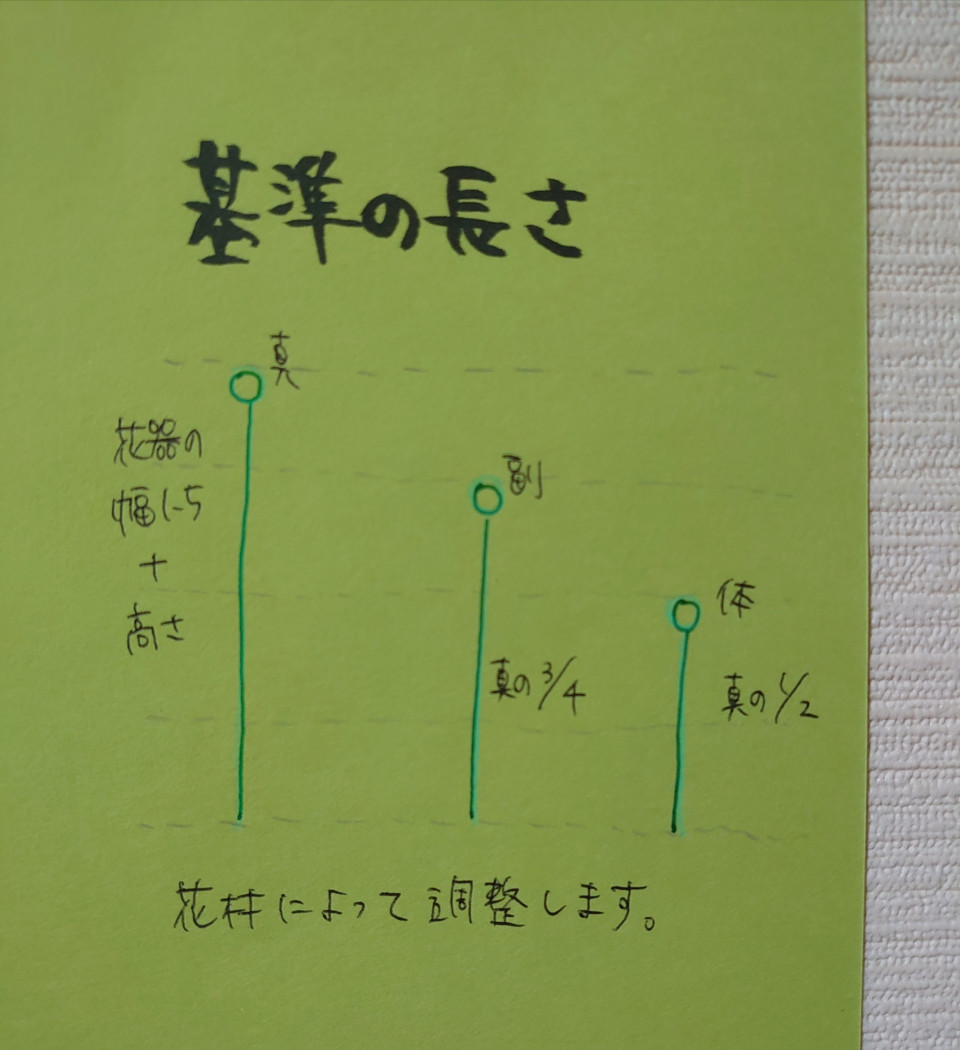 基準の長さ
真
花器の
幅1.5
+
高さ
副
真の3/4
体
真の1/2
花材によって調整します。